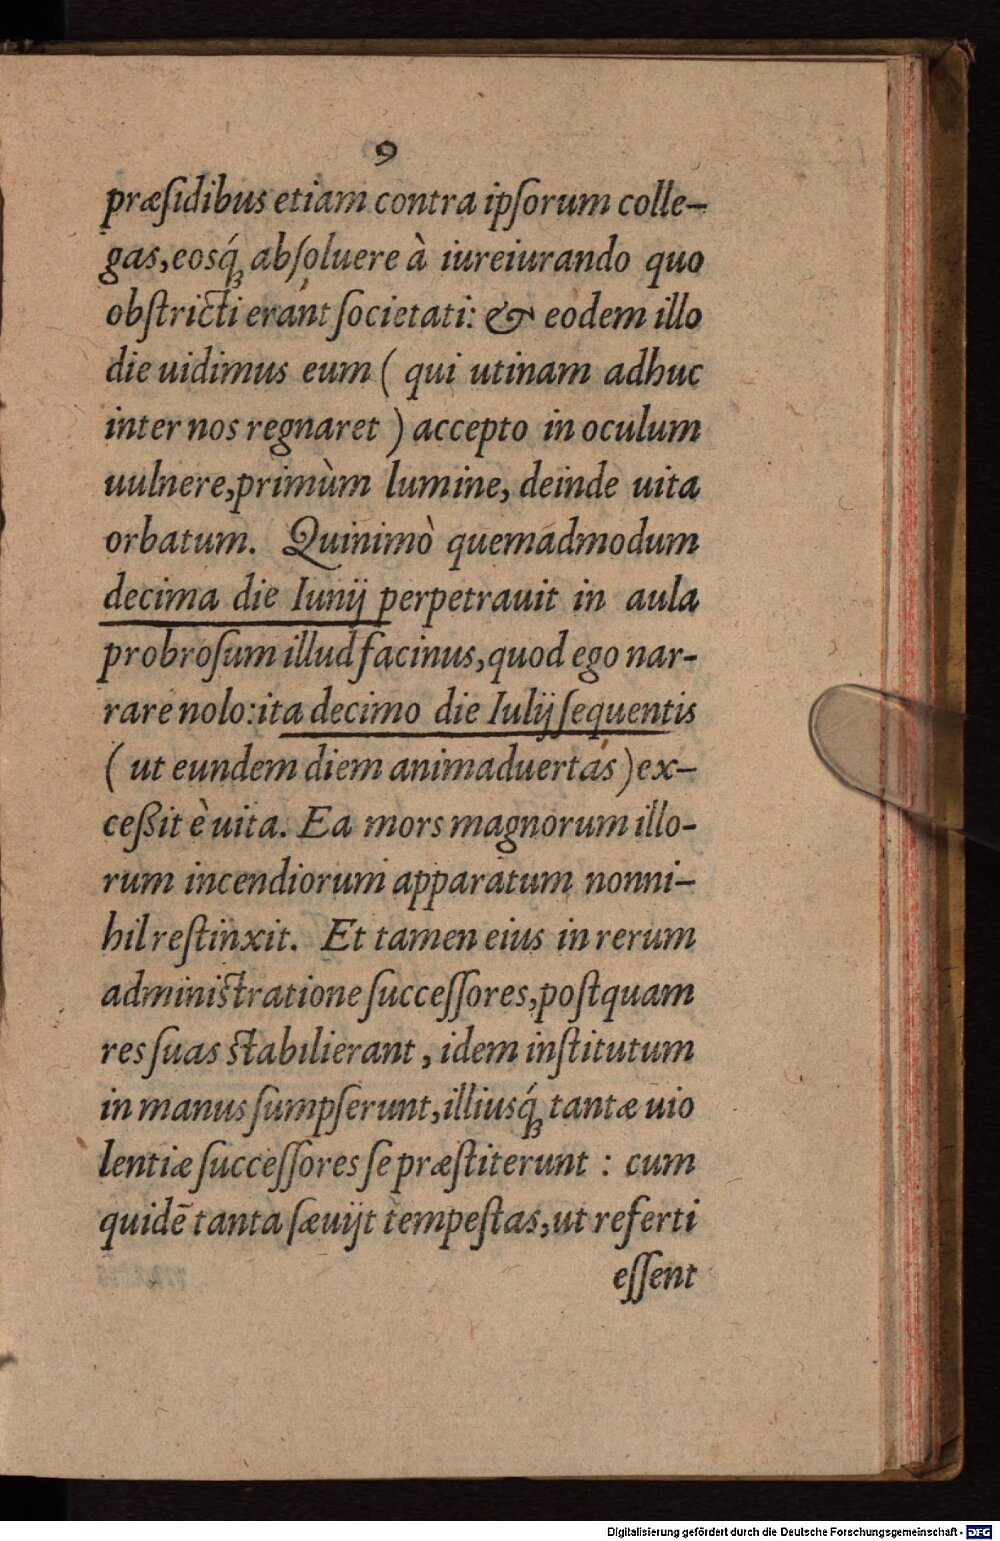 9
præſidibus etiam contra ipſorum colle-
gas, eosq́ꝫ abſoluere à iureiurando quo
obſtricti erant ſocietati: & eodem illo
die uidimus eum ( qui utinam adhuc
inter nos regnaret ) accepto in oculum
uulnere, primùm lumine, deinde uita
orbatum. Quinimò quemadmodum
decima die Iunij perpetrauit in aula
probroſum illud facinus, quod ego nar-
rare nolo: ita decimo die Iulij ſequentis
( ut eundem diem animaduertas ) ex-
ceßit è uita. Ea mors magnorum illo-
rum incendiorum apparatum nonni-
hil reſtinxit. Et tamen eius in rerum
adminiſtratione ſucceſſores, poſtquam
res ſuas ſtabilierant, idem inſtitutum
in manus ſumpſerunt, illiusq́ꝫ tantæ uio
lentiæ ſucceſſores ſe præſtiterunt : cum
quidē tanta ſæuijt tempeſtas, ut referti
eſſent
Digitalisierung gefördert durch die Deutsche Forschungsgemeinschaft - DFG